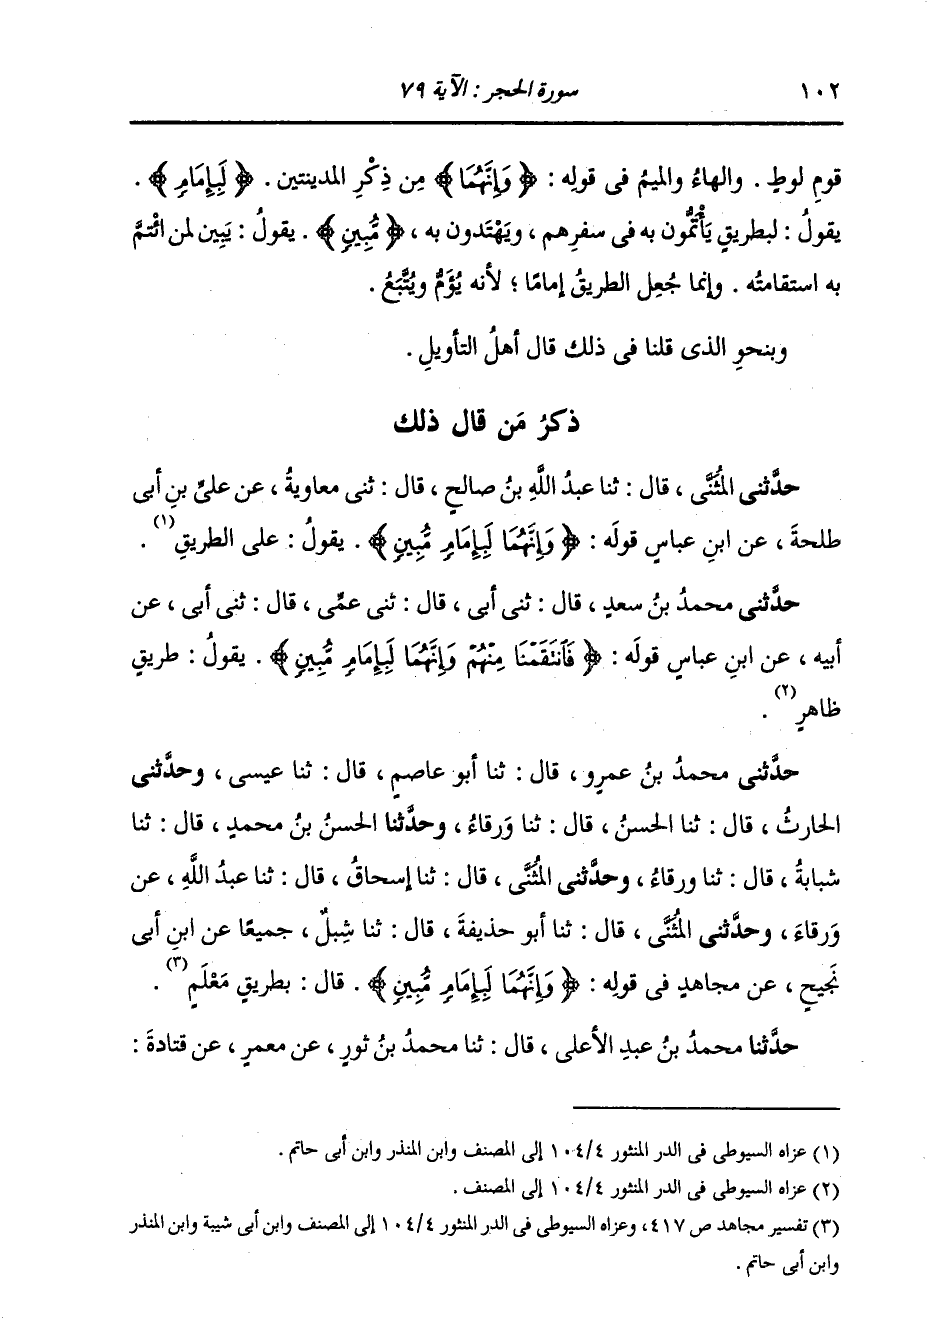 ١٠٢ سورة الحجر : الآية ٧٩
قومِ لوطٍ . والهاءُ والميمُ فى قولِه : ﴿ وَإِنَّهُمَا ﴾ مِن ذِكْرِ المدينتين . ﴿ لَبِإِمَامٍ ﴾ .
يقولُ : لبطريقٍ يَأْتَمُّون به فى سفرِهم ، ويَهْتَدون به ، ﴿ مُّبِينٍ ﴾ . يقولُ : يَبِين لمن ائْتمَّ
به استقامتُه . وإنما جُعِل الطريقُ إمامًا ؛ لأنه يُؤَمُّ ويُتَّبَعُ .
وبنحوِ الذى قلنا فى ذلك قال أهلُ التأويلِ .
ذكرُ مَن قال ذلك
حدَّثنى المُثَنَّى ، قال : ثنا عبدُ اللَّهِ بنُ صالحٍ ، قال : ثنى معاويةُ ، عن علىِّ بنِ أبى
طلحةَ ، عن ابنِ عباسٍ قولَه : ﴿ وَإِنَّهُمَا لَبِإِمَامٍ مُّبِينٍ ﴾ . يقولُ : على الطريقِ (١) .
حدَّثنى محمدُ بنُ سعدٍ ، قال : ثنى أبى ، قال : ثنى عمِّى ، قال : ثنى أبى ، عن
أبيه ، عن ابنِ عباسٍ قولَه : ﴿ فَٱنتَقَمْنَا مِنْهُمْ وَإِنَّهُمَا لَبِإِمَامٍ مُّبِينٍ ﴾ . يقولُ : طريقٍ
ظاهرٍ (٢) .
حدَّثنى محمدُ بنُ عمرٍو ، قال : ثنا أبو عاصمٍ ، قال : ثنا عيسى ، وحدَّثنى
الحارثُ ، قال : ثنا الحسنُ ، قال : ثنا وَرقاءُ ، وحدَّثنا الحسنُ بنُ محمدٍ ، قال : ثنا
شبابةُ ، قال : ثنا ورقاءُ ، وحدَّثنى المُثَنَّى ، قال : ثنا إسحاقُ ، قال : ثنا عبدُ اللَّهِ ، عن
وَرقاءَ ، وحدَّثنى المُثَنَّى ، قال : ثنا أبو حذيفةَ ، قال : ثنا شِبلٌ ، جميعًا عن ابنِ أبى
نَجيحٍ ، عن مجاهدٍ فى قولِه : ﴿ وَإِنَّهُمَا لَبِإِمَامٍ مُّبِينٍ ﴾ . قال : بطريقٍ مَعْلَمٍ (٣) .
حدَّثنا محمدُ بنُ عبدِ الأعلى ، قال : ثنا محمدُ بنُ ثورٍ ، عن معمرٍ ، عن قتادةَ :
(١) عزاه السيوطى فى الدر المنثور ١٠٤/٤ إلى المصنف وابن المنذر وابن أبى حاتم .
(٢) عزاه السيوطى فى الدر المنثور ١٠٤/٤ إلى المصنف .
(٣) تفسير مجاهد ص ٤١٧ ، وعزاه السيوطى فى الدر المنثور ١٠٤/٤ إلى المصنف وابن أبى شيبة وابن المنذر
وابن أبى حاتم .